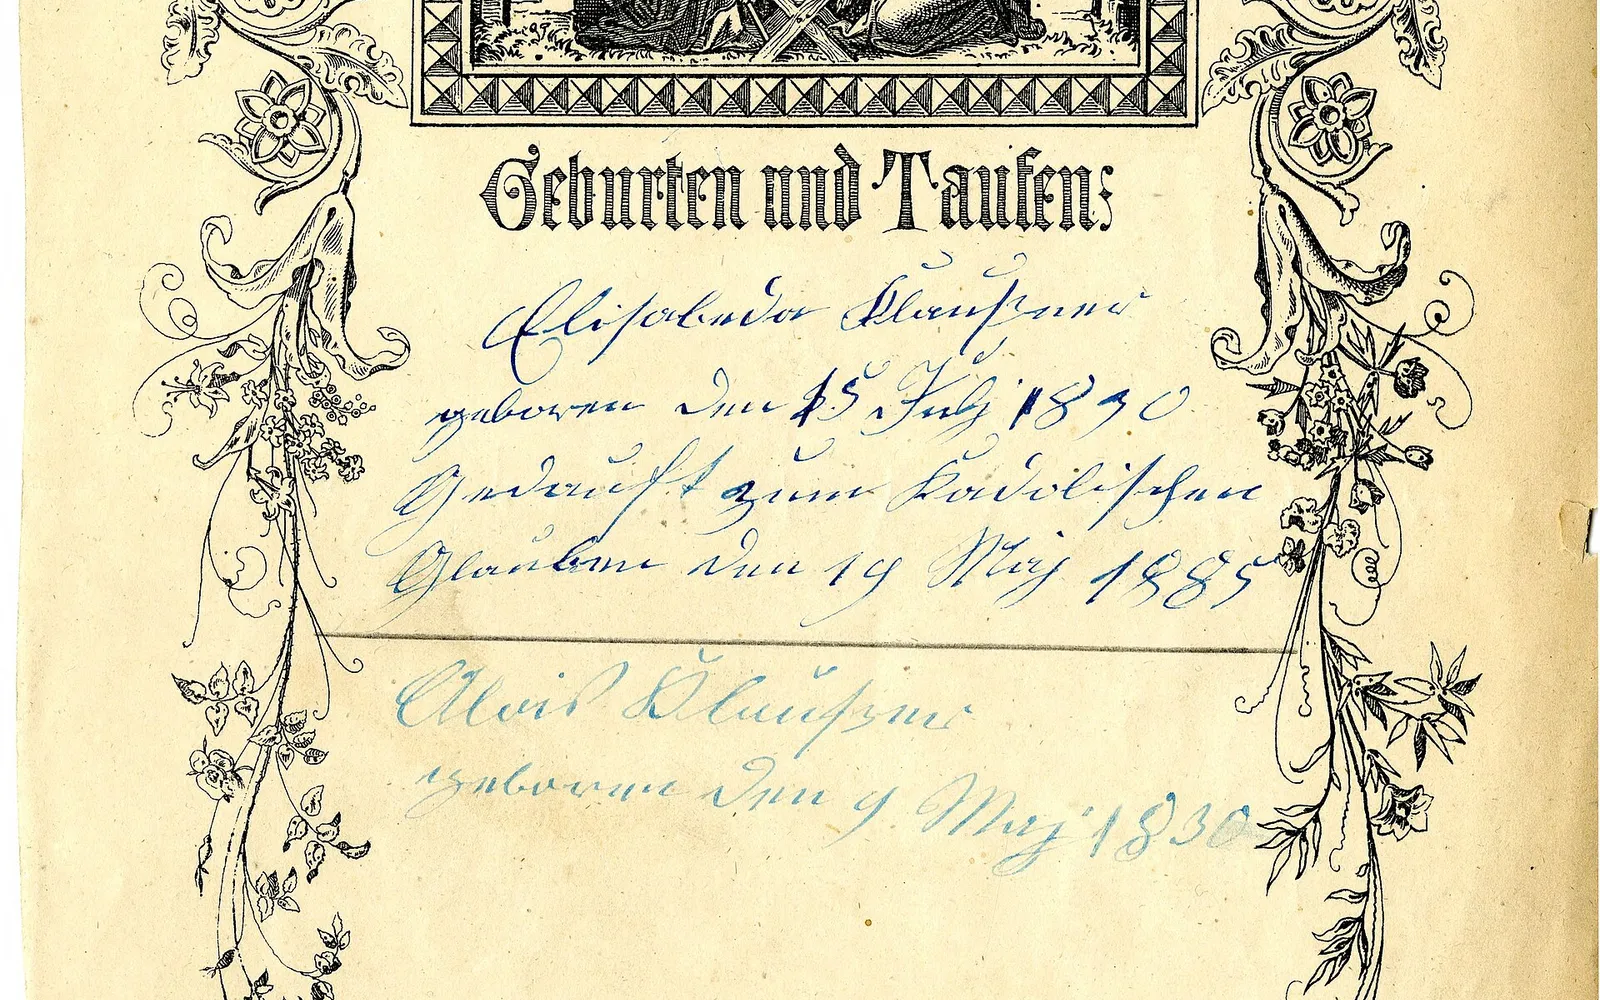 Geburten und Taufen:
Elisabeda Klaußner
geboren den 15 Julj 1830
Gedauft zum Kadolischen
Glauben den 19 Maj 1885
Alois Klaußner
geboren den 9 Maj 1830